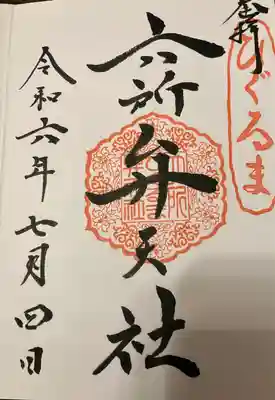 奉拝
ひぐるま
六所弁天社
令和六年七月四日